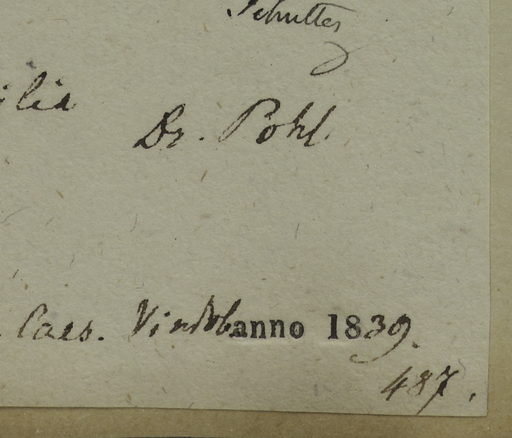 Schultes
ilia
Dr. Pohl.
Caes. Vindob. anno 1839.
487.